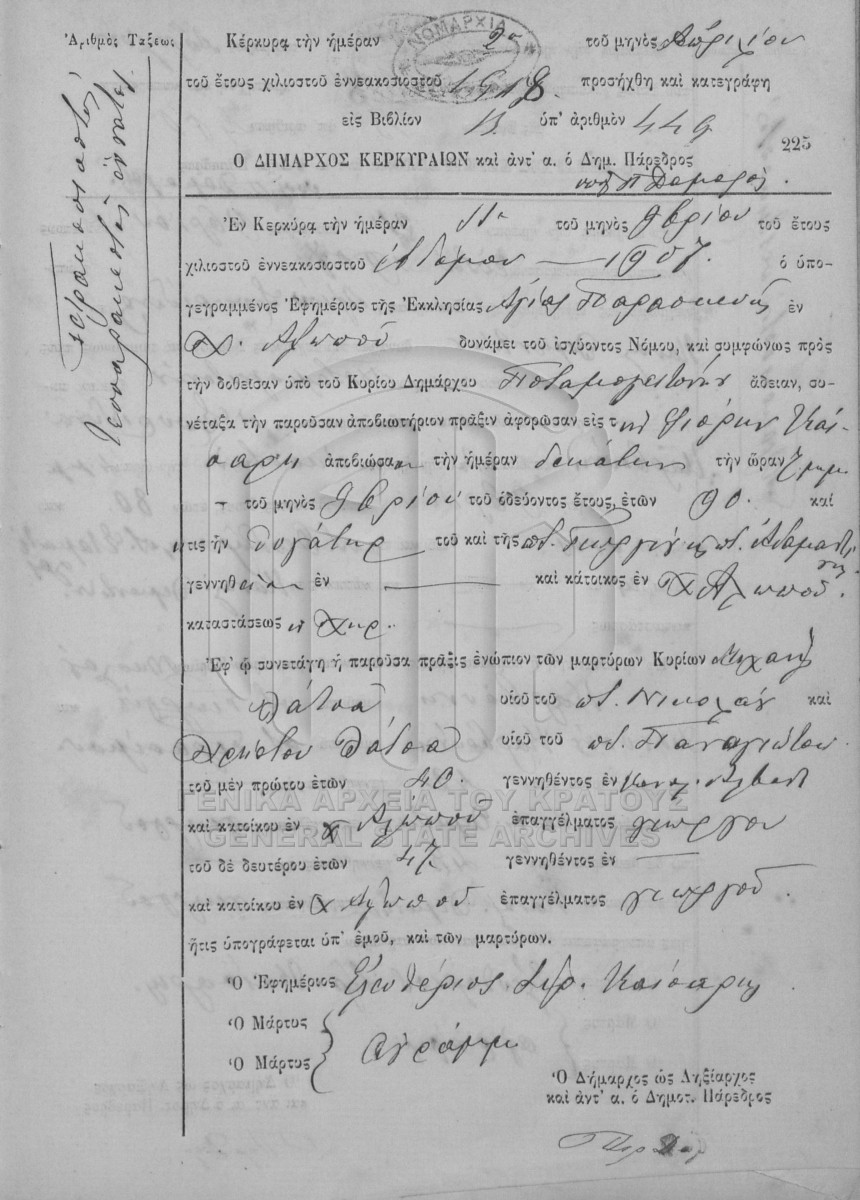 Ἀριθμὸς Τάξεως
τετρακοσιοστὸς
τεσσαρακοστὸς ἔννατος
ΝΟΜΑΡΧΙΑ
Κέρκυρα τὴν ἡμέραν 2α τοῦ μηνὸς Ἀπριλίου
τοῦ ἔτους χιλιοστοῦ ἐννεακοσιοστοῦ 1918 προσήχθη καὶ κατεγράφη
εἰς Βιβλίον Β. ὑπ' ἀριθμὸν 449
225
Ο ΔΗΜΑΡΧΟΣ ΚΕΡΚΥΡΑΙΩΝ καὶ ἀντ' α. ὁ Δημ. Πάρεδρος
Ἐν Κερκύρᾳ τὴν ἡμέραν 11η τοῦ μηνὸς 9βρίου τοῦ ἔτους
χιλιοστοῦ ἐννεακοσιοστοῦ ἑβδόμου — 1907. ὁ ὑπο-
γεγραμμένος Ἐφημέριος τῆς Ἐκκλησίας Ἁγίας Παρασκευῆς ἐν
χ. Ἀλωποῦ δυνάμει τοῦ ἰσχύοντος Νόμου, καὶ συμφώνως πρὸς
τὴν δοθεῖσαν ὑπὸ τοῦ Κυρίου Δημάρχου Ποταμογειτόνων ἄδειαν, συ-
νέταξα τὴν παροῦσαν ἀποβιωτήριον πρᾶξιν ἀφορῶσαν εἰς τὴν Φιόρην Καί-
σαρη ἀποβιώσασαν τὴν ἡμέραν δεκάτην τὴν ὥραν 7 μμ
— τοῦ μηνὸς 9βρίου τοῦ ὁδεύοντος ἔτους, ἐτῶν 90. καὶ
ἥτις ἦν θυγάτηρ τοῦ καὶ τῆς ποτ. Γεωργίου κ ποτ. Ἀδαμαντί
νης
γεννηθεῖσα ἐν — καὶ κάτοικος ἐν χ Ἀλωποῦ.
καταστάσεως χηρ.
Ἐφ' ᾧ συνετάγη ἡ παροῦσα πρᾶξις ἐνώπιον τῶν μαρτύρων Κυρίων Μιχαὴλ
Λάτσα υἱοῦ τοῦ ποτ. Νικολάου καὶ
Χρήστου Λάτσα υἱοῦ τοῦ ποτ. Παναγιώτου
τοῦ μὲν πρώτου ἐτῶν 40. γεννηθέντος ἐν
ΓΕΝΙΚΑ ΑΡΧΕΙΑ ΤΟΥ ΚΡΑΤΟΥΣ
καὶ κατοίκου ἐν χ Ἀλωποῦ ἐπαγγέλματος γεωργοῦ
GENERAL STATE ARCHIVES
τοῦ δὲ δευτέρου ἐτῶν 47. γεννηθέντος ἐν —
καὶ κατοίκου ἐν χ Ἀλωποῦ ἐπαγγέλματος γεωργοῦ.
ἥτις ὑπογράφεται ὑπ' ἐμοῦ, καὶ τῶν μαρτύρων.
Ὁ Ἐφημέριος Ἐλευθέριος Σπ. Καίσαρης
Ὁ Μάρτυς
Ὁ Μάρτυς
Ἀγράμμ
Ὁ Δήμαρχος ὡς Ληξίαρχος
καὶ ἀντ' α. ὁ Δημοτ. Πάρεδρος